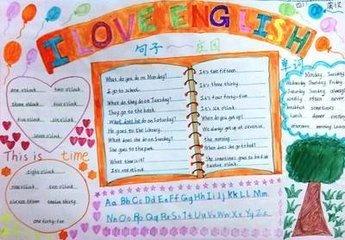 I LOVE ENGLISH
句子
What do you do on Monday?
I go to school.
What do they do on Tuesday?
They go to the park.
What does he do on Saturday?
He goes to the library.
What does he do on Sunday?
She goes to the park.
What time is it?
It's six o'clock.
It's two fifteen.
It's three thirty.
It's four forty-five.
It's six o'clock.
When do you get up?
We always get up at seven in
the morning.
When does she go to bed?
She sometimes goes to bed at
twelve o'clock.
one o'clock two o'clock
three o'clock four o'clock
five o'clock six o'clock
seven o'clock
This is time
eight o'clock
nine o'clock ten o'clock
eleven fifteen twelve thirty
one forty-five
Monday Tuesday
Thursday Friday
Saturday Sunday always
never
sometimes
Aa Bb Cc Dd Ee Ff Gg Hh Ii Jj Kk Ll Mm
Nn Oo Pp Qq Rr Ss Tt Uu Vv Ww Xx Yy Zz